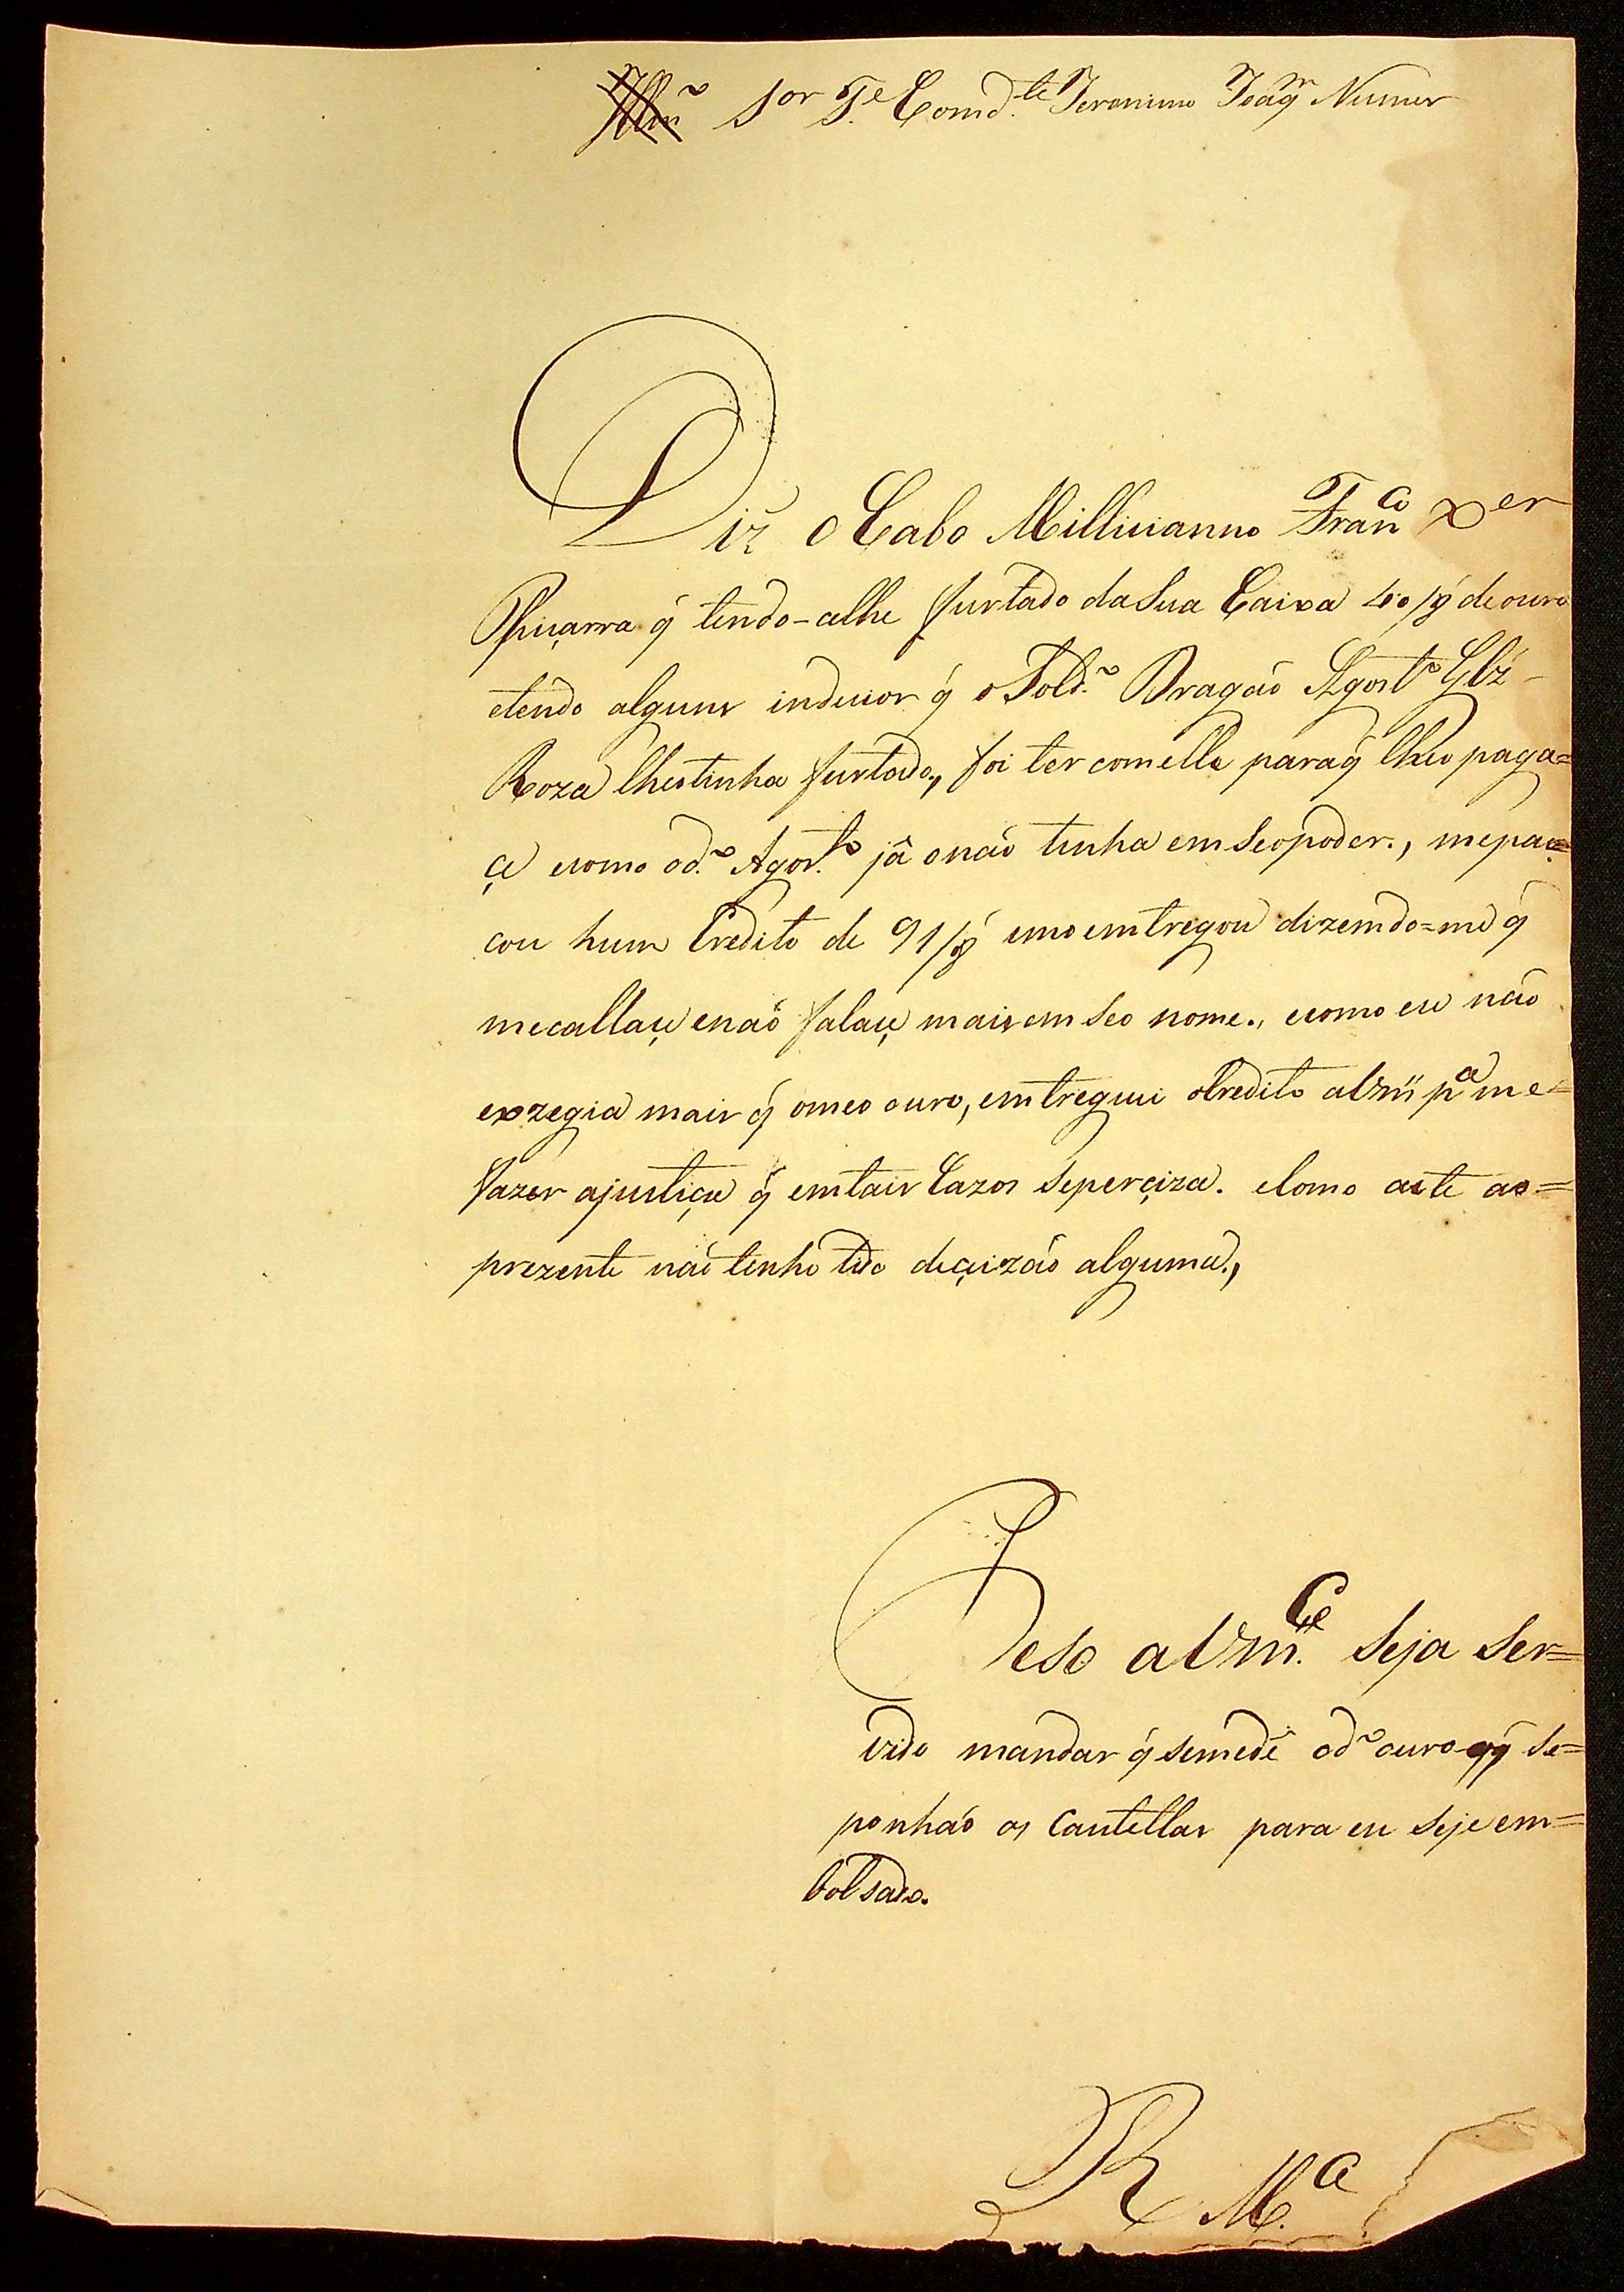 Illmo Sor Te Comd.te Jeronimo Joaqm Nunes
Diz o Cabo Milliciano Franco Xer
Piçarra q̃ tendo-celhe furtado da Sua Caixa 40/8 de ouro
e tendo alguns indicios q̃ o Sold.o Dragaõ Agosto Glz
Roza lhes tinha furtado, foi ter com elle para q̃ lheo paga=
çe e como o d.o Agost.o já o naõ tinha em Seo poder, me
cou hum Credito de 91/8 e mo emtregou dizemdo=me q̃
me callaçe e naõ falaçe mais em Seo nome., e como eu naõ
exzegia mais q̃ o meo ouro, emtreguei o Credito a Vm pa me=
fazer a justiça q̃ em tais Cazos Se perçiza. e Como athe ao=
prezente naõ tenho tido deçizaõ alguma.,
Peso a Vm.ce Seja Ser=
vido mandar q̃ se me dê o do ouro Se=
ponhaõ as Cautellas para eu Seje em=
bolsado.
R M.ce